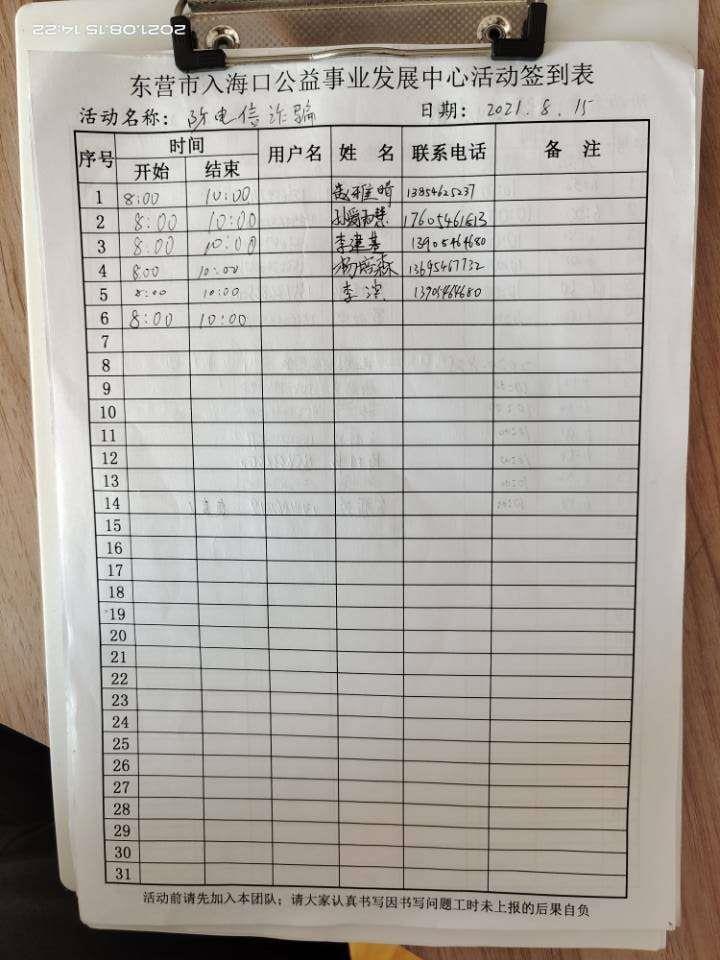 2021.08.15 14:22
东营市入海口公益事业发展中心活动签到表
活动名称: 防电信诈骗 日期: 2021.8.15
序号 时间 用户名 姓 名 联系电话 备 注
开始 结束
1 8:00 10:00 赵雅晴 13854625237
2 8:00 10:00 17605461813
3 8:00 10:00 李建基 13905464680
4 800 10:00 杨培森 13695467732
5 8:00 10:00 李滨 13905464680
6 8:00 10:00
7
8
9
10
11
12
13
14
15
16
17
18
19
20
21
22
23
24
25
26
27
28
29
30
31
活动前请先加入本团队；请大家认真书写因书写问题工时未上报的后果自负